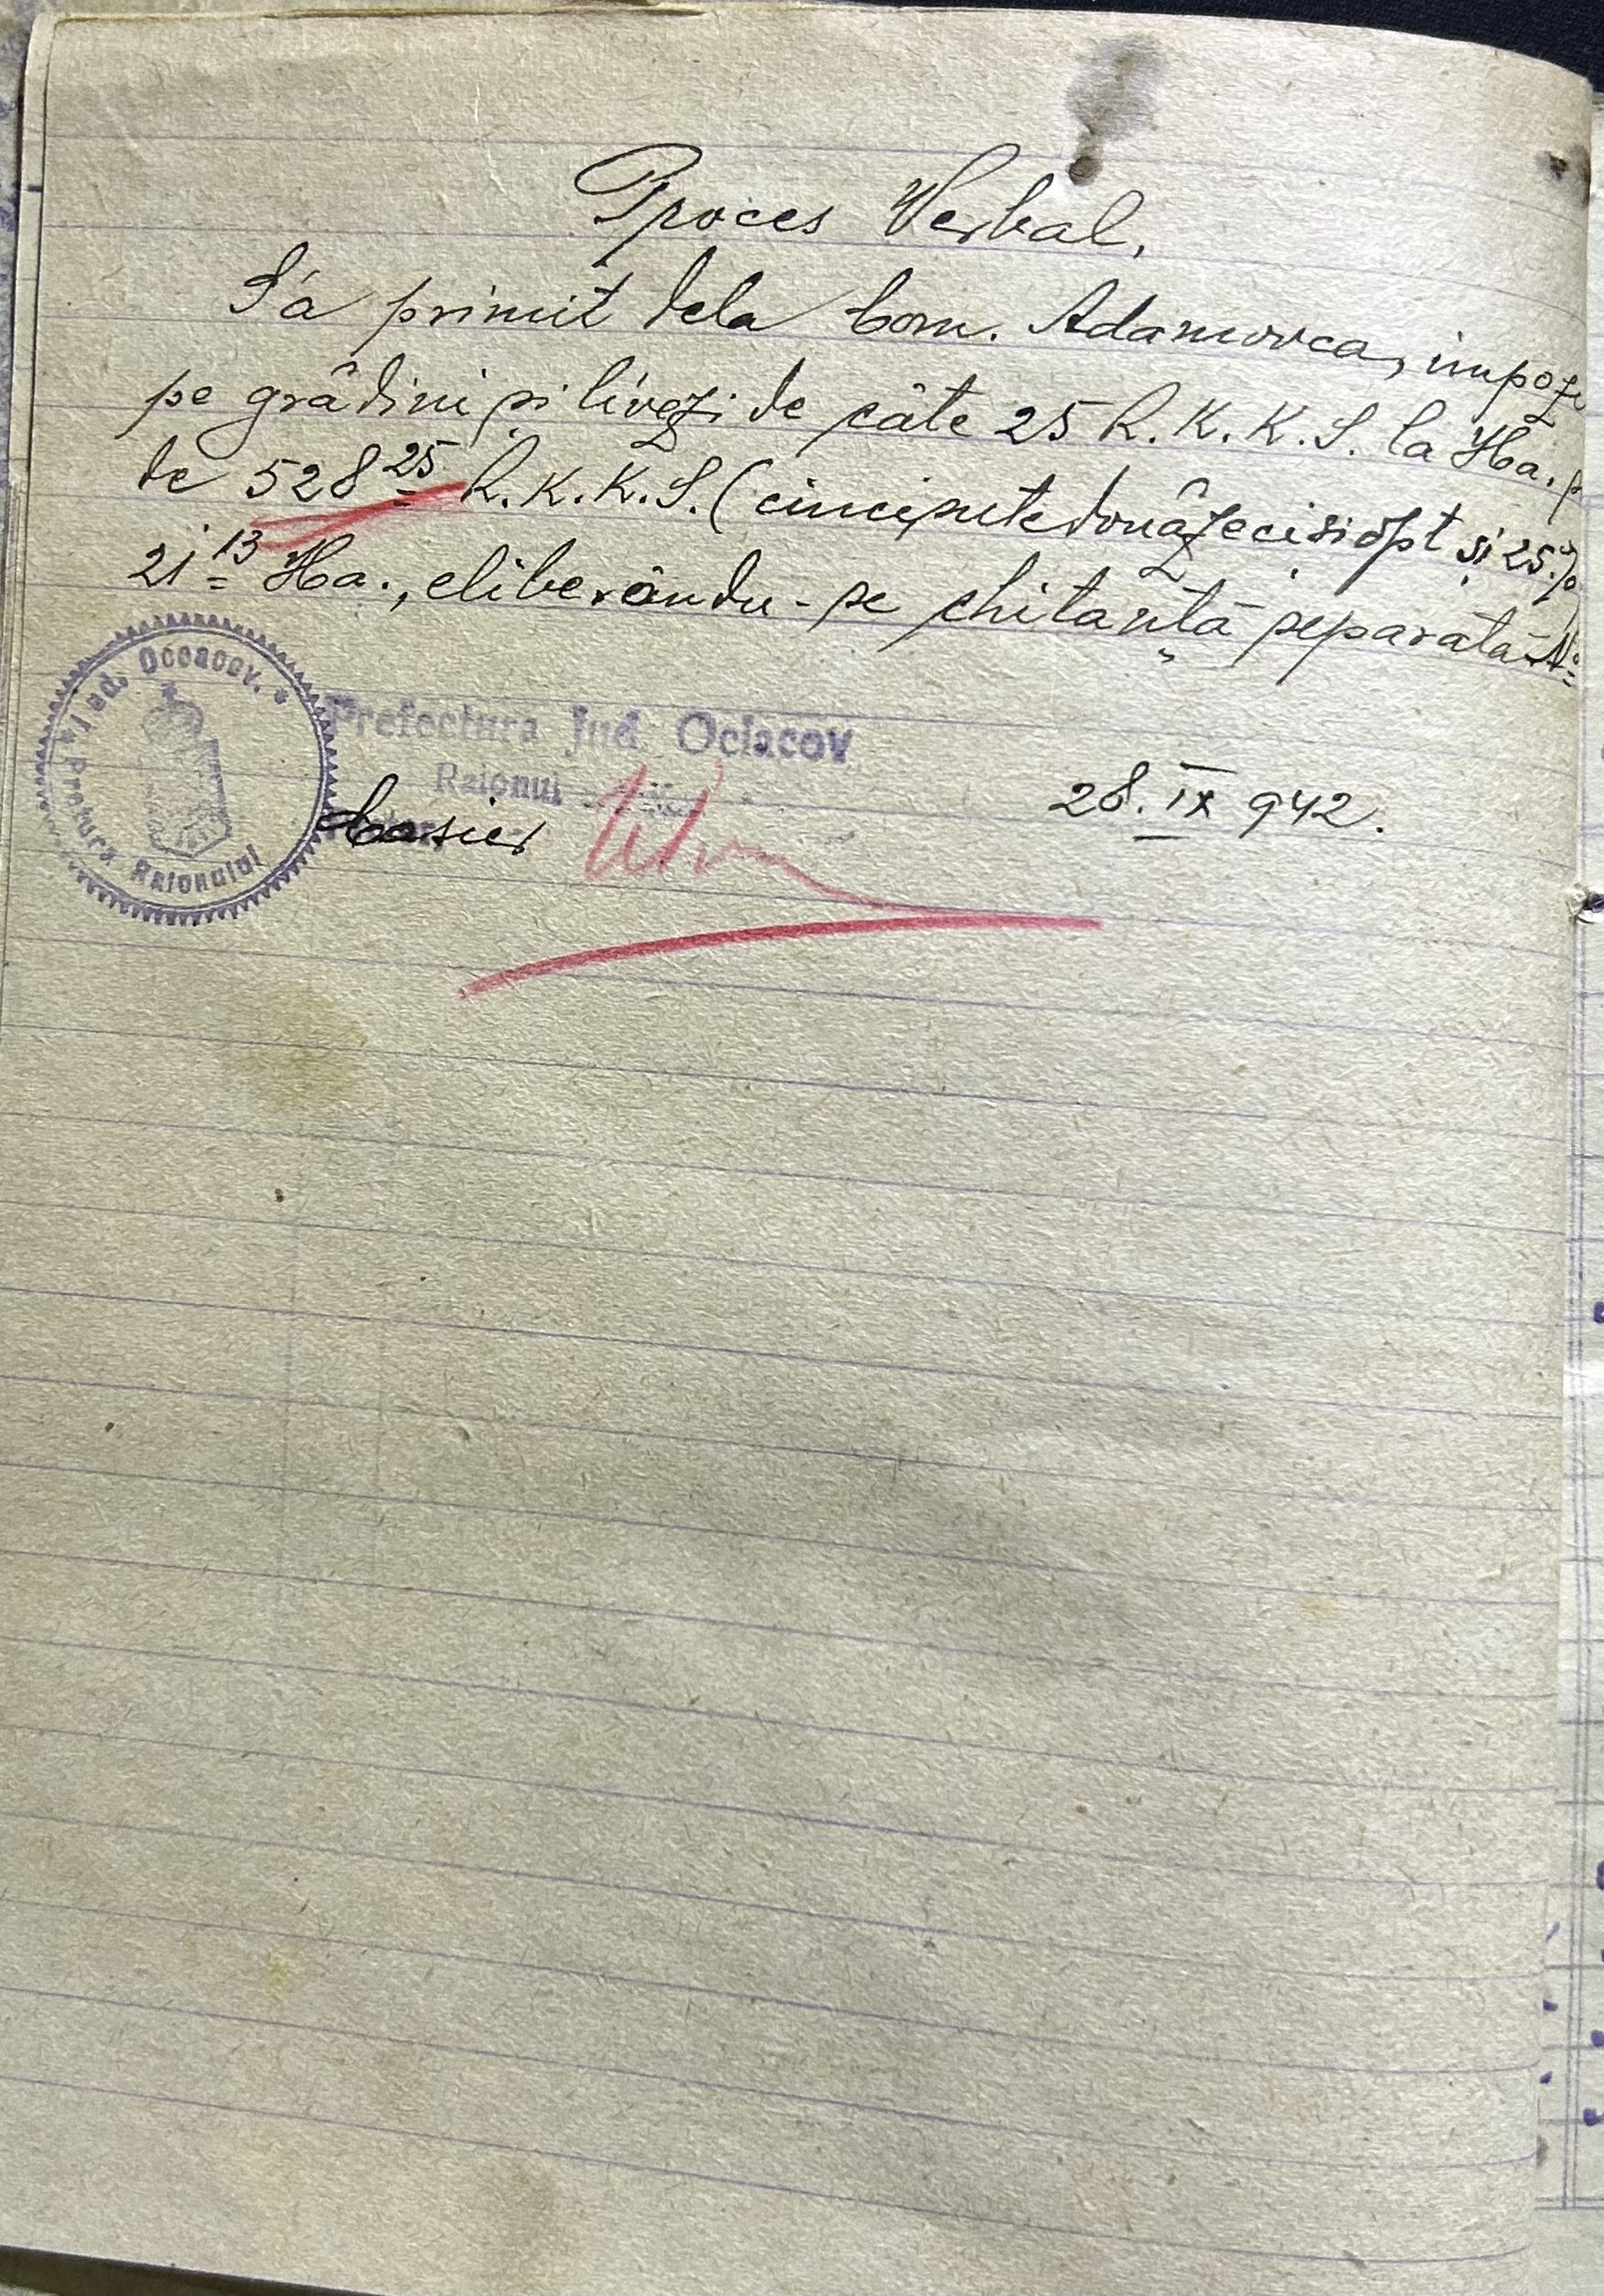 Proces Verbal.
S'a primit dela Com. Adamovca, impoz
pe grădini și livezi de câte 25 R.K.K.S. la Ha.
de 528 25 R.K.K.S. (cincisutedouăzecișiopt și 25%)
21 13 Ha., eliberându-se chitanță separată No
Jud. Oceacov.
Pretura Raionului
Prefectura Jud Ociacov
Raionul
Casier
28.IX 942.